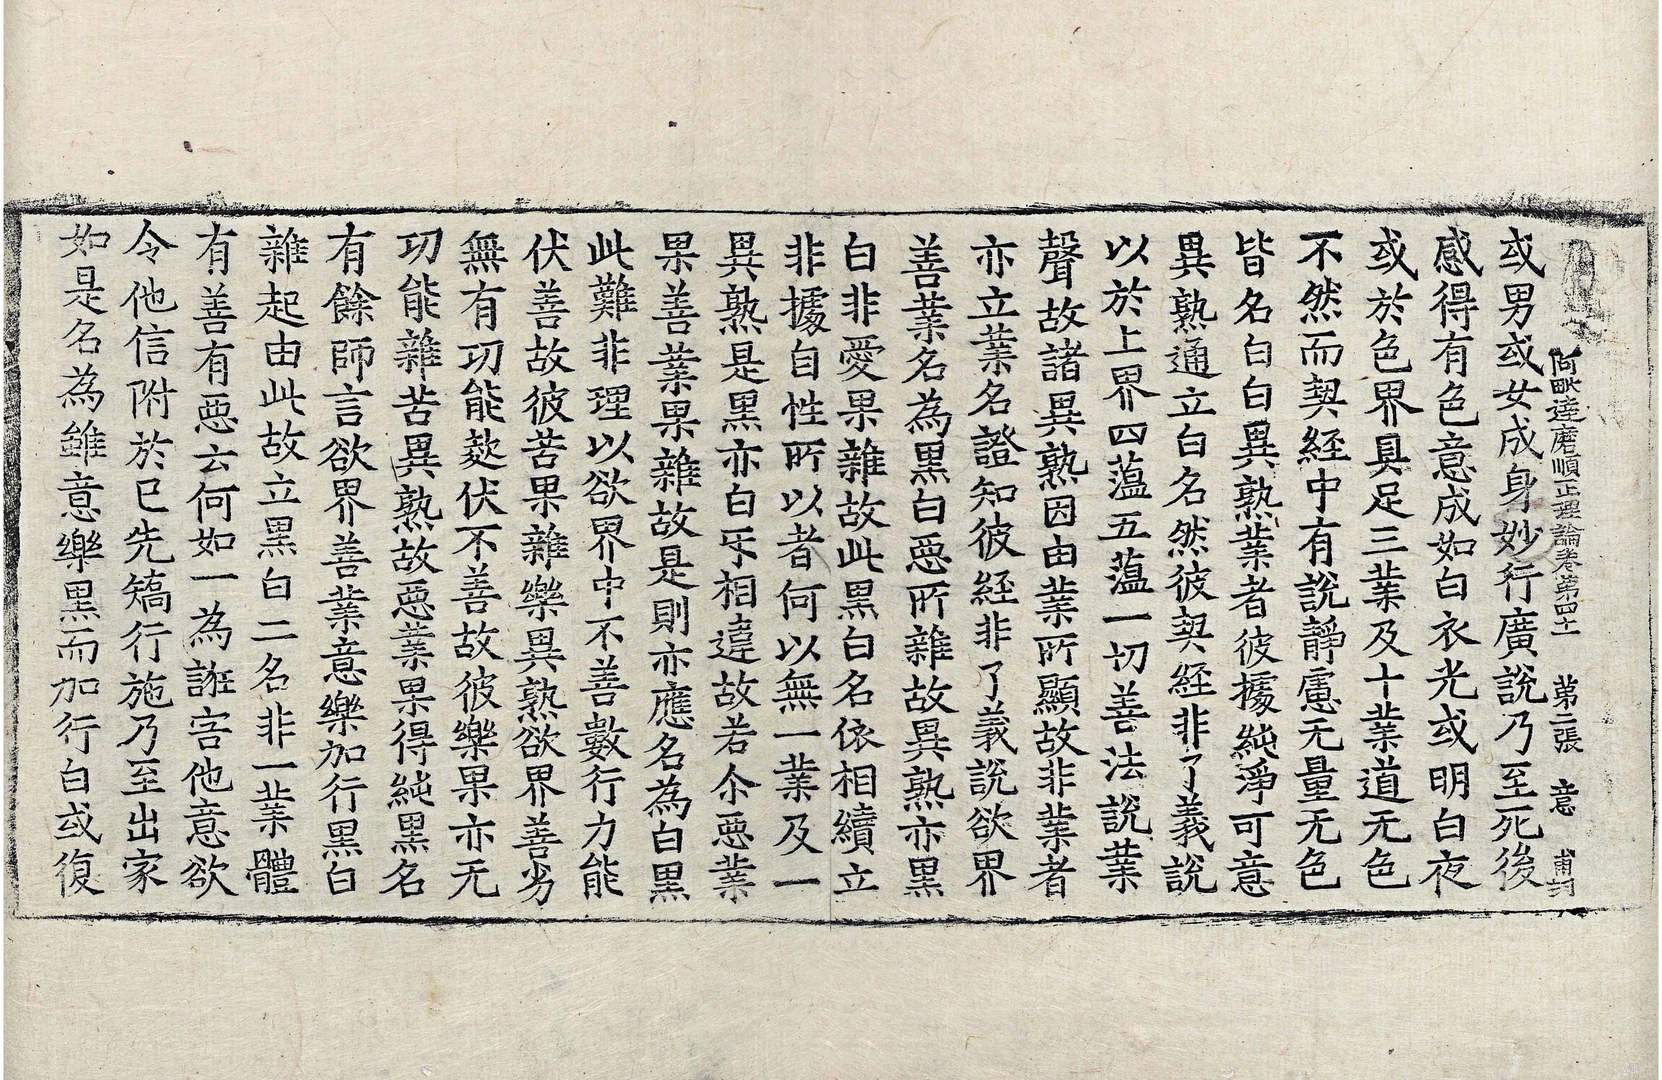 阿毗達磨順正理論卷第四十一 第二張 意
或男或女成身妙行廣說乃至死後
感得有色意成如白衣光或明白夜
或於色界具足三業及十業道无色
不然而契經中有說靜慮无量无色
皆名白白異熟業者彼據純淨可意
異熟通立白名然彼契經非了義說
以於上界四蘊五蘊一切善法說業
聲故諸異熟因由業所顯故非業者
亦立業名證知彼經非了義說欲界
善業名為黑白惡所雜故異熟亦黑
白非愛果雜故此黑白名依相續立
非據自性所以者何以無一業及一
異熟是黑亦白乐相違故若尒惡業
果善業果雜故是則亦應名為白黑
此難非理以欲界中不善數行力能
伏善故彼苦果雜樂異熟欲界善劣
無有功能㱃伏不善故彼樂果亦无
功能雜苦異熟故惡業果得純黑名
有餘師言欲界善業意樂加行黑白
雜起由此故立黑白二名非一業體
有善有惡云何如一為誑害他意欲
令他信附於已先矯行施乃至出家
如是名為雖意樂黑而加行白或復